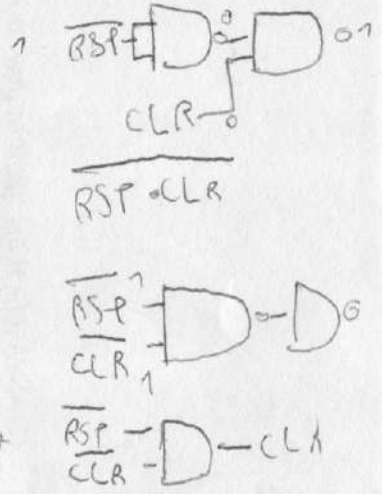 1 R̅S̅P̅ 0 0 1
CLR 0
R̅S̅P̅ ̅·̅C̅L̅R̅
R̅S̅P̅ 1
C̅L̅R̅ 1
R̅S̅P̅
C̅L̅R̅ CLR